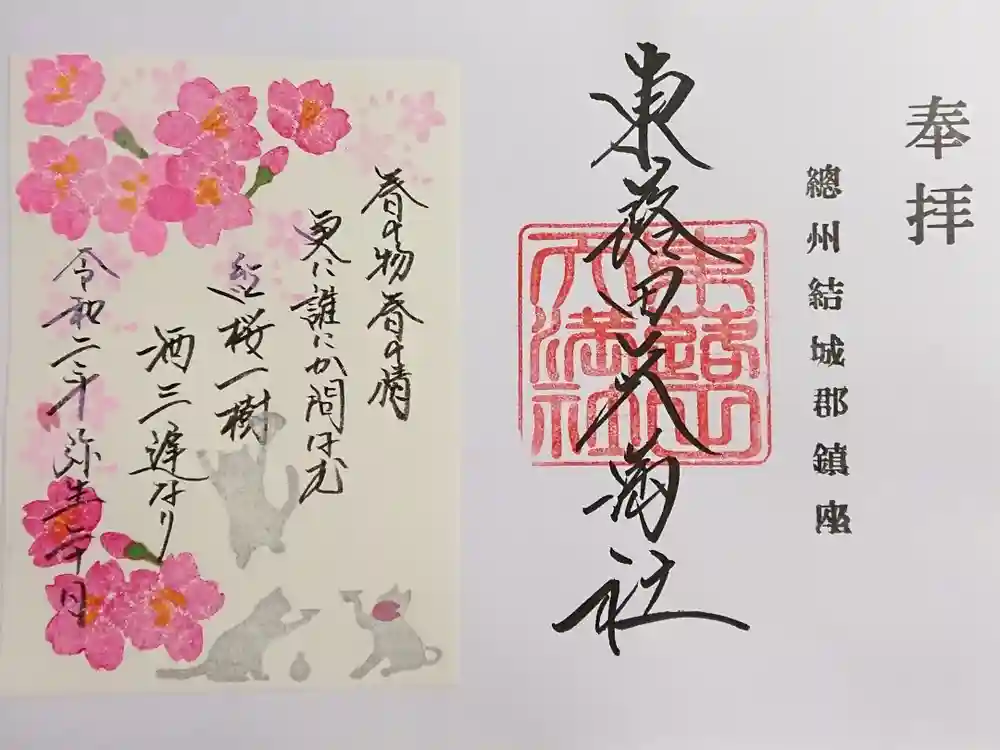 奉拝
總州結城郡鎮座
東蕗田天満社
東蕗田天満社
春の物春の情
更に誰にか問はむ
桜一樹
酒三遅なり
令和二年 弥生二十日